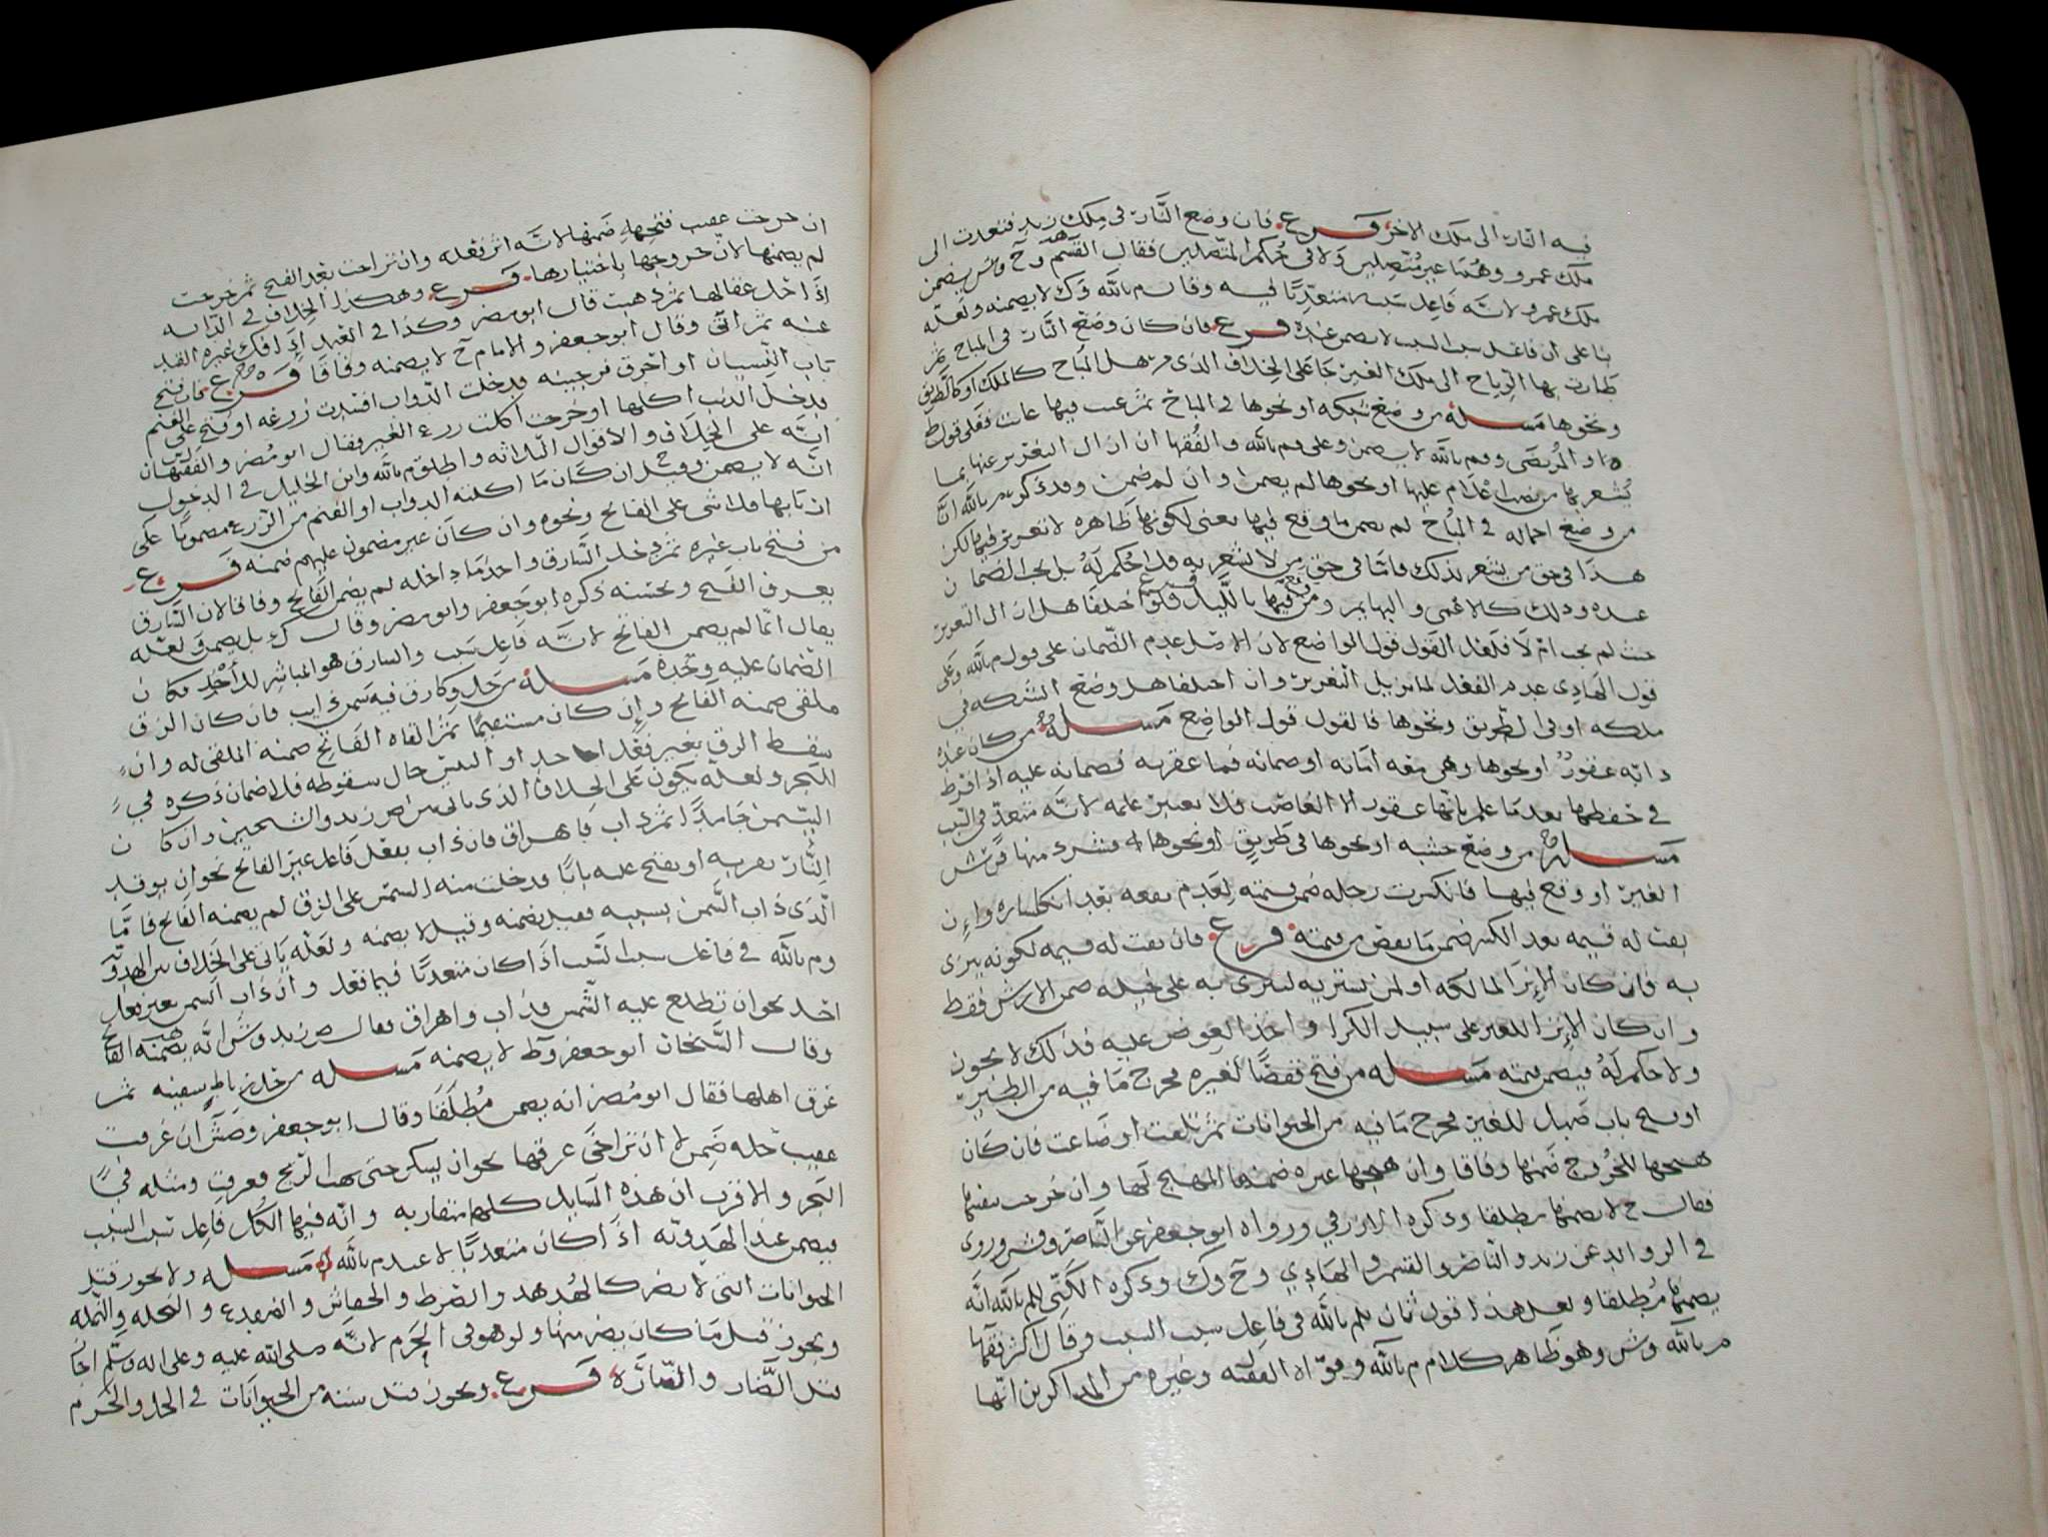 فيه النار الى ملك الاخر فرع فان وضع النار في ملك زيد فتعدت الى
ملك عمرو وهما غير متصلين ولا في حكم المتصلين فقال القسم وح وش يضمن
ملك عمرو لانه فاعل سبب متعديا فيه وقال م بالله وك لا يضمنه ولعله
بنا على ان فاعل سبب السبب لا يضمن عنده فرع فان كان وضع النار في المباح ثم
طارت بها الرياح الى ملك الغير جا على الخلاف الذي مر هل المباح كالملك او كالطريق
ونحوها مسله من وضع شبكه او نحوها في المباح ثم عنت فيها عانت فعلى قول ط
والمرتضى وم بالله لا يضمن وعلى م بالله والفقها ان ازال التغرير عنها بما
يشعر بها من نصب اعلام عليها او نحوها لم يضمن وان لم ضمن وقد ذكر م بالله ان
من وضع احماله في المباح لم يضمن ما وقع فيها يعني لكونها ظاهره لا تغرير فيها لكن
هذا في حق من يشعر بذلك فاما في حق من لا شعر به فلا حكم له بل يجب الضمان
عنده وذلك كالاعمى والبهايم ومن وقع فيها بالليل فرع فلو اختلفا هل ازال التغرير
حيث لم يجب ام لا فلعل القول قول الواضع لان الاصل عدم الضمان على قول م بالله وعلى
قول الهادي عدم الفعل لما يزيل التغرير وان اختلفا هل وضع الشركه في
ملكه او في الطريق ونحوها فالقول قول الواضع مسله من كان عنده
دابه عقور او نحوها وهي معه امانه او ضمانه فما عقرته فضمانه عليه اذا فرط
في حفظها بعد ما علم بانها عقور الا الغاصب فلا يعتبر علمه لانه متعد في السبب
مسله من وضع خشبه او نحوها في طريق او نحوها فشرد منها فرس
الغير او وقع فيها فانكسرت رجله ضمن قيمته لعدم نفعه بعد انكساره وان
بقت له قيمه بعد الكسر ضمن ما نقص من قيمته فرع فان بقت له قيمه لكونه ينزى
به فان كان الانزا لمالكه او لمن يشتريه لينزي به على خيله ضمن الارش فقط
وان كان الانزا للغير على سبيل الكرا واخذ العوض عليه فذلك لا يجوز
ولا حكم له فيضمن قيمته مسله من فتح قفصا لغيره فخرج ما فيه من الطير
او فتح باب صبل للغير فخرج ما فيه من الحيوانات ثم تلفت او ضاعت فان كان
هيجها للخروج ضمنها وفاقا وان هيجها غيره ضمنها المهيج لها وان خرجت بنفسها
فقال ح لا يضمنها مطلقا وذكره الازرقي ورواه ابو جعفر عن الناصر وش وروى
في الزوايد عن زيد والناصر والقسم والهادي وح وك وذكره الكني للم بالله انه
يضمنها مطلقا ولعل هذا قول ثان للم بالله في فاعل سبب السبب وقال اكثر فقها
م بالله وش وهو ظاهر كلام م بالله وقواه الفقيه وغيره من المذاكرين انها
ان خرجت عقيب فتحه ضمنها لانه اثر فعله وان تراخت بعد الفتح ثم خرجت
لم يضمنها لان خروجها باختيارها فرع وهكذا الخلاف في الدابه
اذا حل عقالها ثم ذهبت قال ابو مضر وكذا في العبد اذا فك غيره القيد
عنه ثم ابق وقال ابو جعفر والامام ح لا يضمنه وفاقا فرع فان فتح
باب البستان او احرق فرجينه فدخلت الدواب افسدت زرعه او فتح على الغنم
فدخل الذيب اكلها او خرجت اكلت زرع الغير فقال ابو مضر والفقيهان
انه على الخلاف والاقوال الثلاثه واطلق م بالله وابن الخليل في الدخول
انه لا يضمن وقيل ان كان ما اكلته الدواب او الغنم من الزرع مضمونا على
ان بابها فلا شي على الفاتح ونحوه وان كان غير مضمون عليهم ضمنه فرع
من فتح باب غيره ثم دخل السارق واخذ ما داخله لم يضمن الفاتح وفاقا لان السارق
يعرف الفتح ويحسنه ذكره ابو جعفر وابو مضر وقال ك بل يضمن ولعله
يقال انما لم يضمن الفاتح لانه فاعل سبب والسارق هو المباشر للاخذ فكان
الضمان عليه وحده مسله من حل وكا زق فيه سمن ذايب فان كان الزق
ملقى ضمنه الفاتح وان كان مستقيما ثم القاه الفاتح ضمنه الملقي له وان
سقط الزق بغير فعل احد او السمن حال سقوطه فلا ضمان ذكره في
البحر ولعله يكون على الخلاف الذي ياتي بين ص زيد والشيخين وان كان
السمن جامدا ثم ذاب فاهراق فان ذاب بفعل فاعل غير الفاتح نحو ان يوقد
النار بقربه او يفتح عليه بابا فدخلت منه الشمس على الزق لم يضمنه الفاتح فاما
الذي ذاب السمن بسببه فقيل يضمنه وقيل لا يضمنه ولعله ياتي على الخلاف بين الهدويه
وم بالله في فاعل سبب السبب اذا كان متعديا فيما فعل وان ذاب السمن بغير فعل
احد نحو ان تطلع عليه الشمس فذاب واهراق فقال ص زيد وش انه يضمنه الفاتح
وقال الشيخان ابو جعفر وط لا يضمنه مسله من حل رباط سفينه ثم
غرق اهلها فقال ابو مضر انه يضمن مطلقا وقال ابو جعفر وص ش ان غرقت
عقيب حله ضمن لا ان تراخى غرقها نحو ان يسكن حتى هب الريح فغرقت ومثله في
البحر والاقرب ان هذه المسايل كلها متقاربه وانه فيها الكل فاعل سبب السبب
فيضمن عند الهدويه اذا كان متعديا لا عند م بالله مسله ولا يجوز قتل
الحيوانات التي لا تضر كالهدهد والصرط والخفاش والضفدع والنحله والنمله
ويجوز قتل ما كان يضر منها ولو هو في الحرم لانه صلى الله عليه وعلى اله وسلم اجاز
قتل الضار والضاره فرع ويجوز قتل سته من الحيوانات في الحل والحرم